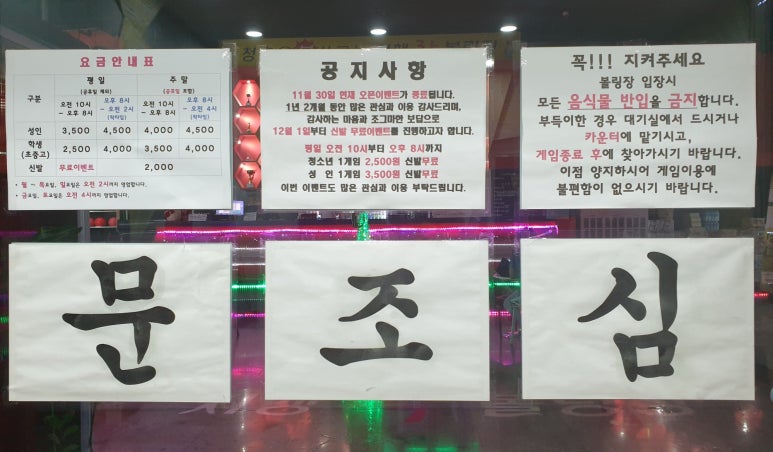 요금안내표
구분
평 일
(공휴일 제외)
주 말
(공휴일 포함)
오전 10시
~ 오후 8시
오후 8시
~ 오전 2시
(락타임)
오전 10시
~ 오후 8시
오후 8시
~ 오전 4시
(락타임)
성인 3,500 4,500 4,000 4,500
학생
(초중고) 2,500 4,000 3,500 4,000
신발 무료이벤트 2,000
* 월 ~ 목요일, 일요일은 오전 2시까지 영업합니다.
* 금요일, 토요일은 오전 4시까지 영업합니다.
공지사항
11월 30일 현재 오픈이벤트가 종료됩니다.
1년 2개월 동안 많은 관심과 이용 감사드리며,
감사하는 마음과 조그마한 보답으로
12월 1일부터 신발 무료이벤트를 진행하고자 합니다.
평일 오전 10시부터 오후 8시까지
청소년 1게임 2,500원 신발무료
성 인 1게임 3,500원 신발무료
이번 이벤트도 많은 관심과 이용 부탁드립니다.
꼭!!! 지켜주세요
볼링장 입장시
모든 음식물 반입을 금지합니다.
부득이한 경우 대기실에서 드시거나
카운터에 맡기시고,
게임종료 후에 찾아가시기 바랍니다.
이점 양지하시어 게임이용에
불편함이 없으시기 바랍니다.
문 조 심